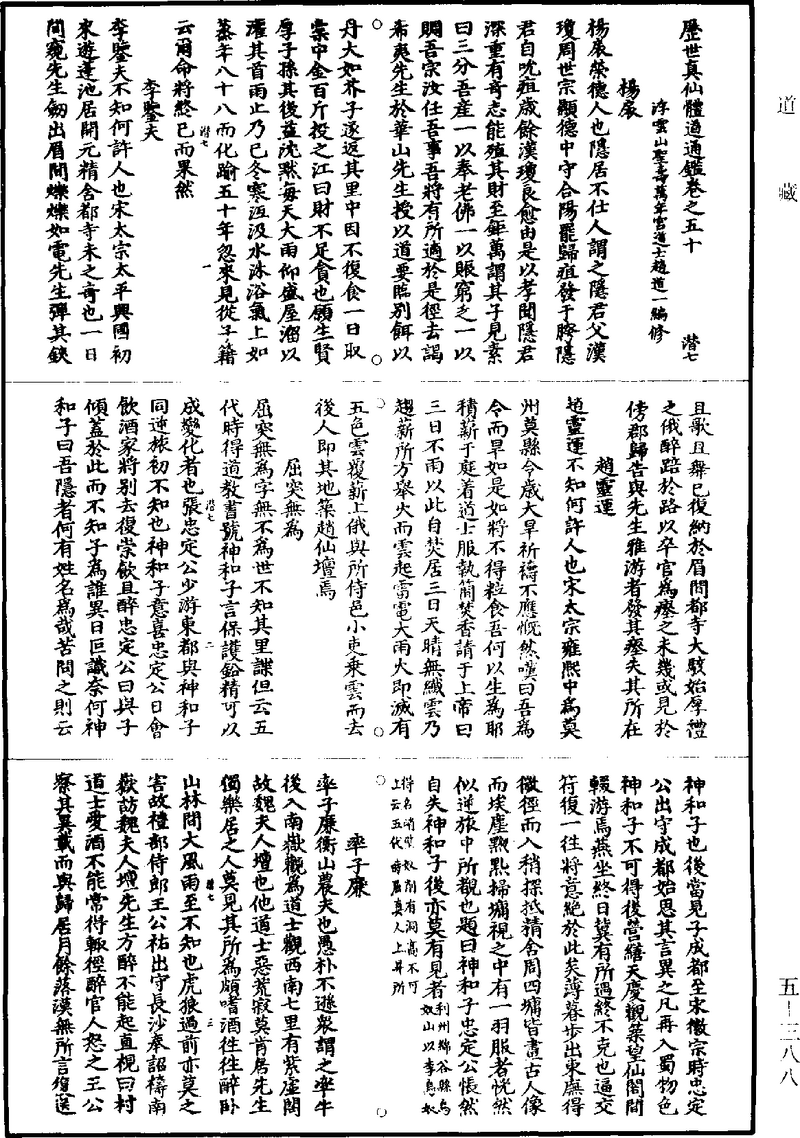 道藏
歷世真仙體道通鑑卷之五十 潛七
浮雲山聖壽萬年宮道士趙道一編修
楊扆
楊扆榮德人也隱居不仕人謂之隱君父漢
瓊周世宗顯德中守合陽罷歸疽發于胯隱
君自吮疽歲餘漢瓊良愈由是以孝聞隱君
深重有奇志能殖其財至鉅萬謂其子見素
曰三分吾產一以奉老佛一以賑窮乏一以
賙吾宗汝任吾事吾將有所適於是徑去謁
希夷先生於華山先生授以道要臨別餌以
丹大如芥子遂返其里中因不復食一日取
橐中金百斤投之江曰財不足貪也願生賢
厚子孫其後益沈默每天大雨仰盛屋溜以
灌其首雨止乃已冬寒沍汲水沐浴氣上如
蒸年八十八而化踰五十年忽來見從子籍
云爾命將終已而果然
潛七 一
李鑒夫
李鑒夫不知何許人也宋太宗太平興國初
來遊蓬池居開元精舍都寺未之奇也一日
間窺先生劒出眉間爍爍如電先生彈其鋏
且歌且舞已復納於眉間都寺大駭始厚禮
之俄醉踣於路以卒官為瘞之未幾或見於
傍郡歸告與先生雅游者發其瘞失其所在
趙靈運
趙靈運不知何許人也宋太宗雍熙中為莫
州莫縣令歲大旱祈禱不應慨然嘆曰吾為
令而旱如是如將不得粒食吾何以生為耶
積薪于庭着道士服執簡焚香請于上帝曰
三日不雨以此自焚居三日天晴無纖雲乃
趨薪所方舉火而雲起雷電大雨火即滅有
五色雲覆薪上俄與所侍邑小吏乘雲而去
後人即其地築趙仙壇焉
屈突無為
屈突無為字無不為世不知其里諜但云五
代時得道教書號神和子言保護鉛精可以
成變化者也張忠定公少游東都與神和子
潛七 二
同逆旅初不知也神和子意喜忠定公日會
飲酒家將別去復崇飲且醉忠定公曰與子
傾蓋於此而不知子為誰異日叵識奈何神
和子曰吾隱者何有姓名為哉苦問之則云
神和子也後當見子成都至宋徽宗時忠定
公出守成都始思其言異之凡再入蜀物色
神和子不可得後營繕天慶觀築望仙閣間
輟游焉燕坐終日冀有所遇終不克也逼交
符復一往將意絕於此矣薄暮步出東廡得
微徑而入稍探抵精舍周四墉皆畫古人像
而埃塵黕黕掃墉視之中有一羽服者恍然
似逆旅中所覩也題曰神和子忠定公悵然
自失神和子後亦莫有見者利州綿谷縣烏奴山以李烏奴
得名峭壁如削有洞高不可上云五代時屈真人上昇所
率子廉
率子廉衡山農夫也愚朴不遜衆謂之率牛
後入南嶽觀為道士觀西南七里有紫虛閣
故魏夫人壇也他道士惡荒寂莫肯居先生
獨樂居之人莫見其所為頗嗜酒往往醉卧
山林間大風雨至不知也虎狼過前亦莫之
潛七 三
害故禮部侍郎王公祐出守長沙奉詔禱南
嶽訪魏夫人壇先生方醉不能起直視曰村
道士愛酒不能常得輒徑醉官人恕之王公
察其異載而與歸居月餘落漠無所言復送
五-三八八